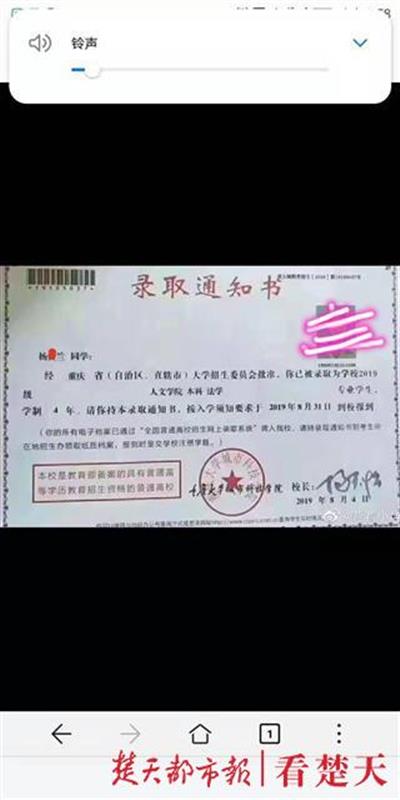 铃声
录取通知书
杨 兰 同学：
经 重庆 省（自治区、直辖市）大学招生委员会批准，你已被录取为学校2019
级 人文学院 本科 法学 专业学生，
学制 4 年。请你持本录取通知书，按入学须知要求于 2019年8月31日 到校报到
（你的所有电子档案已通过"全国普通高校招生网上录取系统"调入我校，请持录取通知书到考生所
在地招生办领取纸质档案，报到时呈交学校注册学籍。）
本校是教育部备案的具有普通高
等学历教育招生资格的普通高校
重庆大学城市科技学院 校长：
2019 年 8 月 4 日
1
楚天都市报 | 看楚天